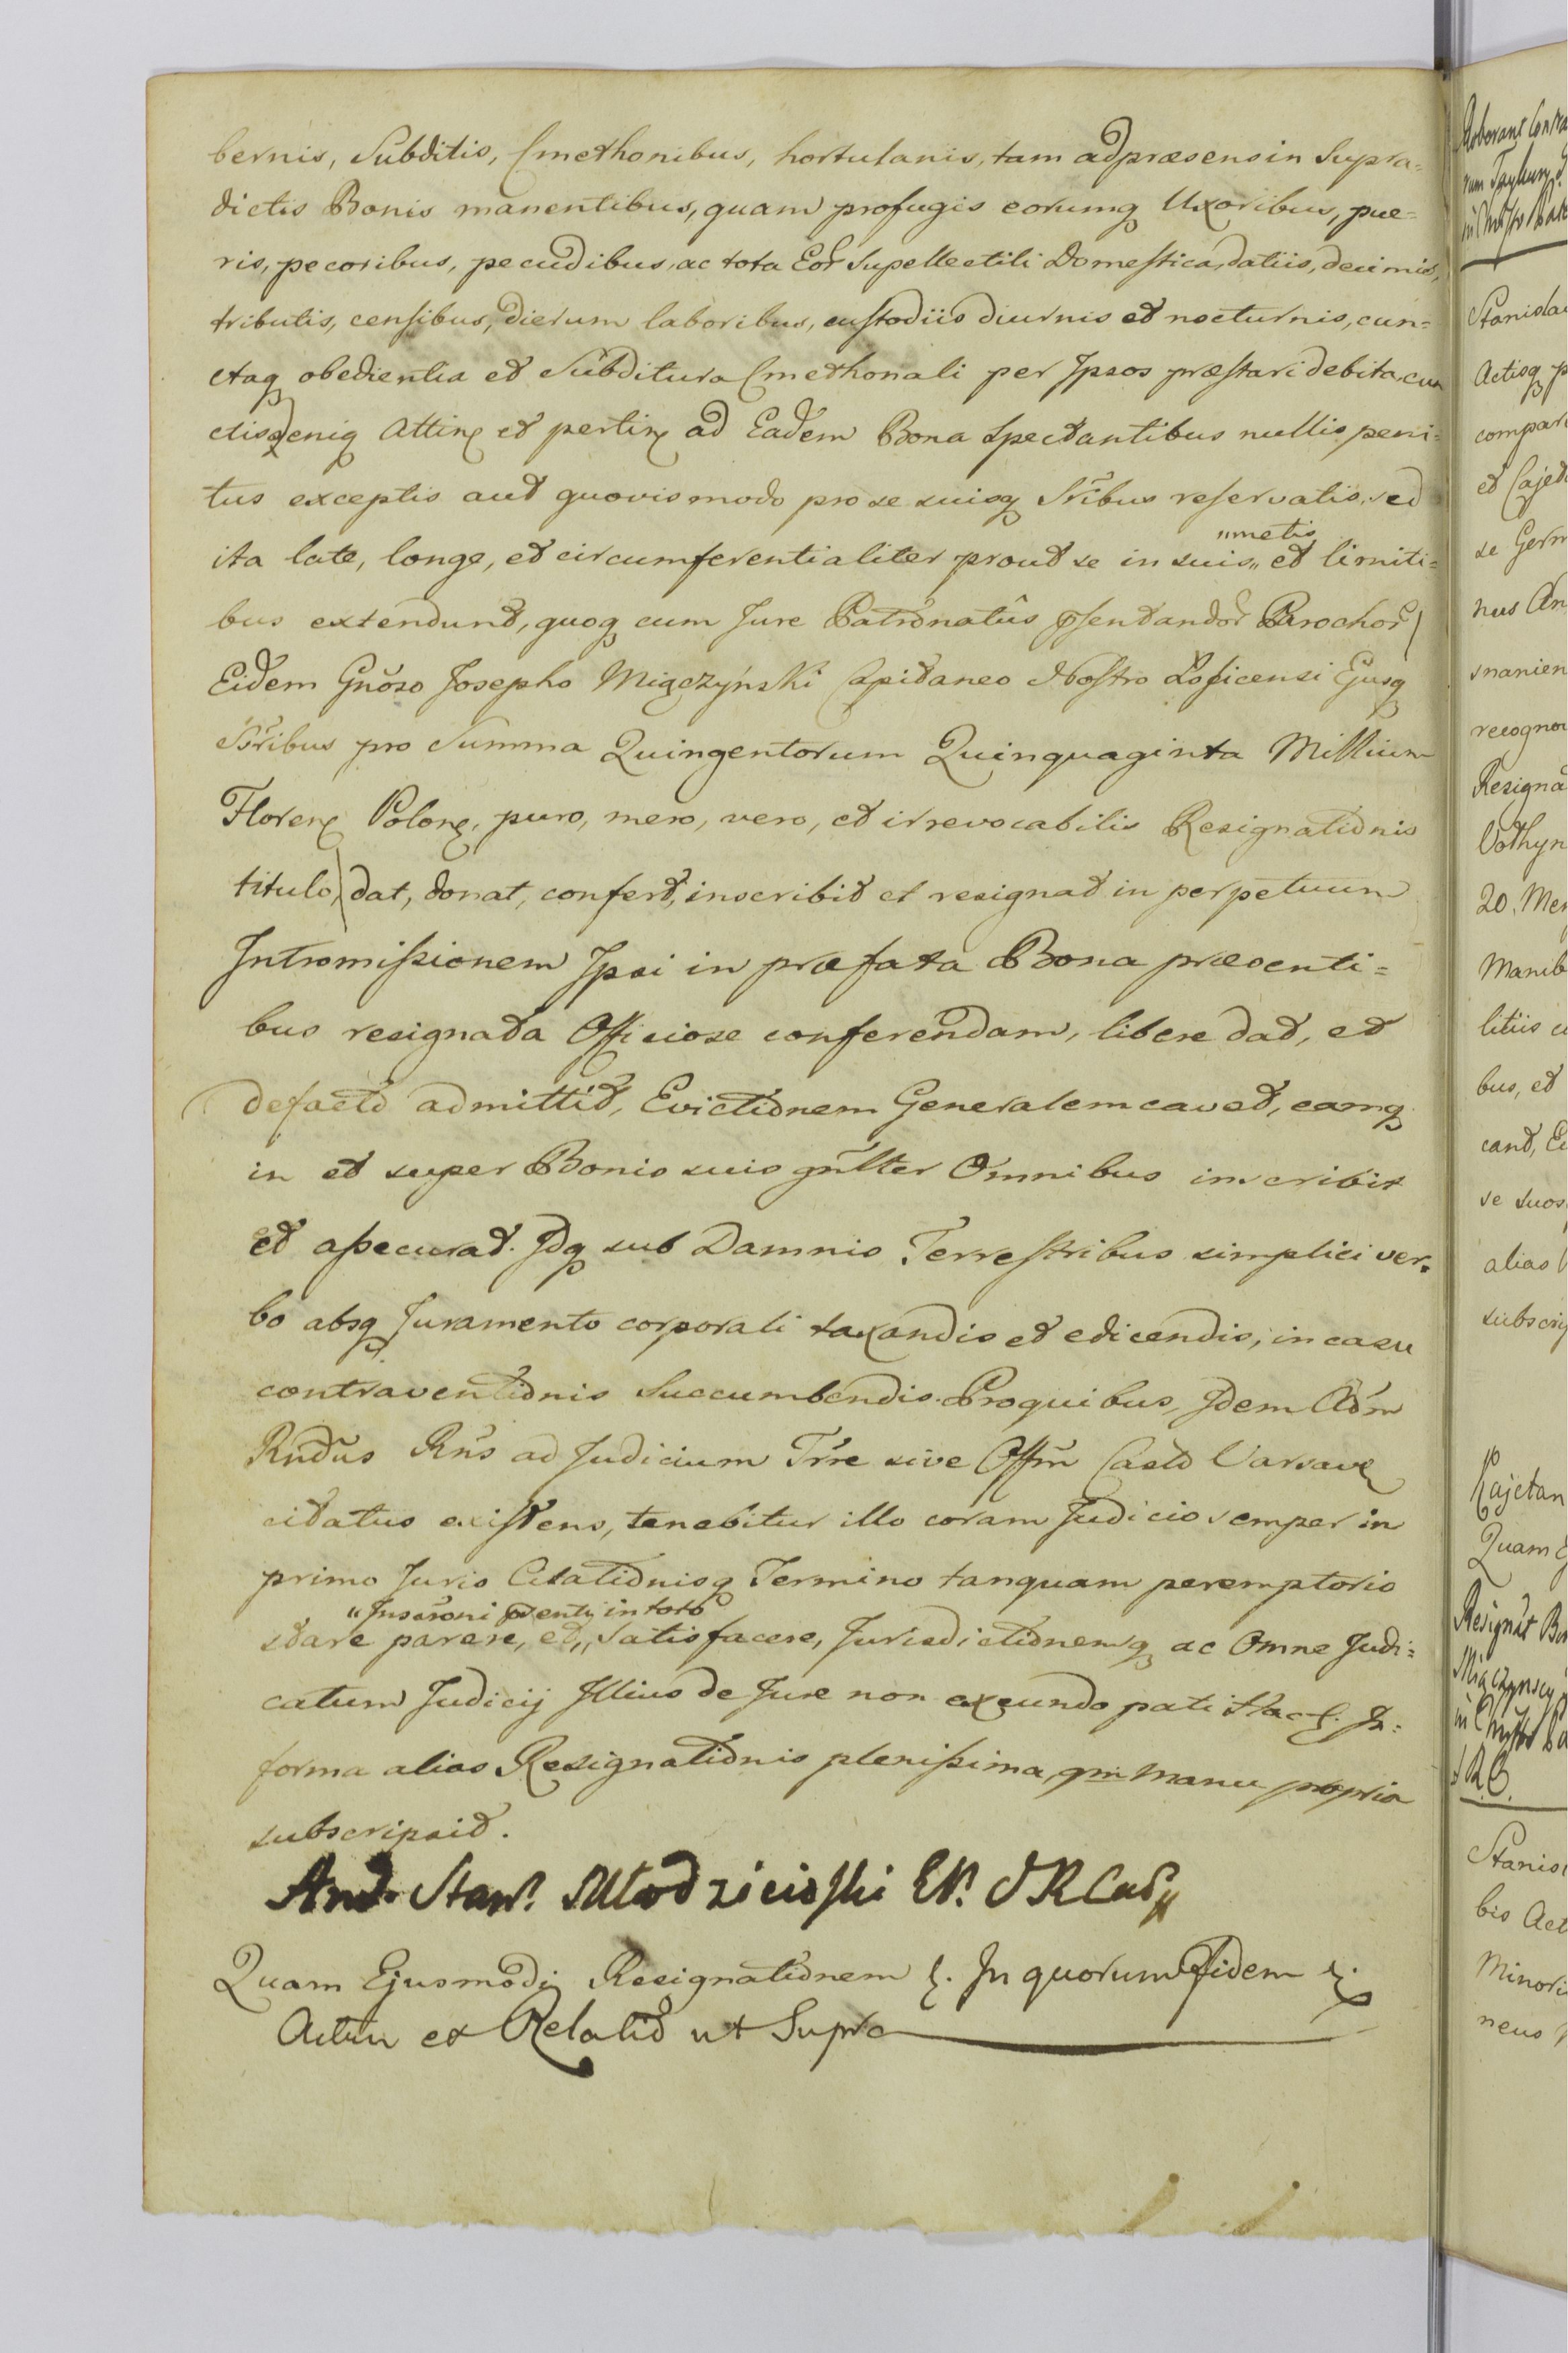 bernis, Subditis, Cmethonibus, hortulanis, tam ad præsens in Supra=
dictis Bonis manentibus, quam profugis eorumq Uxoribus, pue=
ris, pecoribus, pecudibus, ac tota Eor̃ Supellectili Domestica, datiis, decimis,
tributis, censibus, dierum laboribus, custodiis diurnis et nocturnis, cun=
ctaq obedientia et Subditura Cmethonali per Ipsos præstari debita, cun
ctisq deniq Attin et pertin ad Eadem Bona Spectantibus nullis peni=
tus exceptis aut quovis modo pro se suisq Sribus reservatis, sed
ita late, longe, et circumferentialiter prout se in suis „metis et limiti=
bus extendunt, quoq cum Jure Patronatûs pſentandor̃ Parochor̃
Eidem Gnõso Josepho Miączyński Capitaneo Nostro Łosicensi Ejusq
Sribus pro Summa Quingentorum Quinquaginta Millium
Floren Polon, puro, mero, vero, et irrevocabilis Resignationis
titulo, dat, donat, confert, inscribit et resignat in perpetuum
Intromissionem Ipsi in præfata Bona præsenti=
bus resignata Officiose conferendam, libere dat, et
defacto admittit, Evictionem Generalem cavet, eamq
in et super Bonis suis gñlter Omnibus inscribit
et assecurat. Idq sub Damnis Terrestribus simplici ver=
bo absq Juramento corporali taxandis et edicendis, in casu
contraventionis Succumbendis. Pro quibus, Idem Adm̃
Rndus Rñs ad Judicium Trre sive Offm̃ Castr̃ Varsav
citatus existens, tenebitur illo coram Judicio semper in
primo Juris Citationisq Termino tanquam peremptorio
stare parere, et „Inscrõni pñenti in toto Satisfacere, Jurisdictionemq ac Omne Judi=
catum Judicij Illius de Jure non exeundo pati Hac &. In
forma alias Resignationis plenissima, qm̃ Manu propria
subscripsit.
And. Stan. Młodzieioski EP. S R Canc
Quam Ejusmodi Resignationem &. In quorum Fidem &.
Actum et Relatio ut Supra
Stanislau
Actisq p
compar
se Germ
nus An
snanien
recogno
Resigna
Volhyn
20. Men
Manib
litiis
bus, et
se suos
alias
subscri
Kajetan
Quam E
Resignat Bo
Stanis
bis Act
Minori
neus